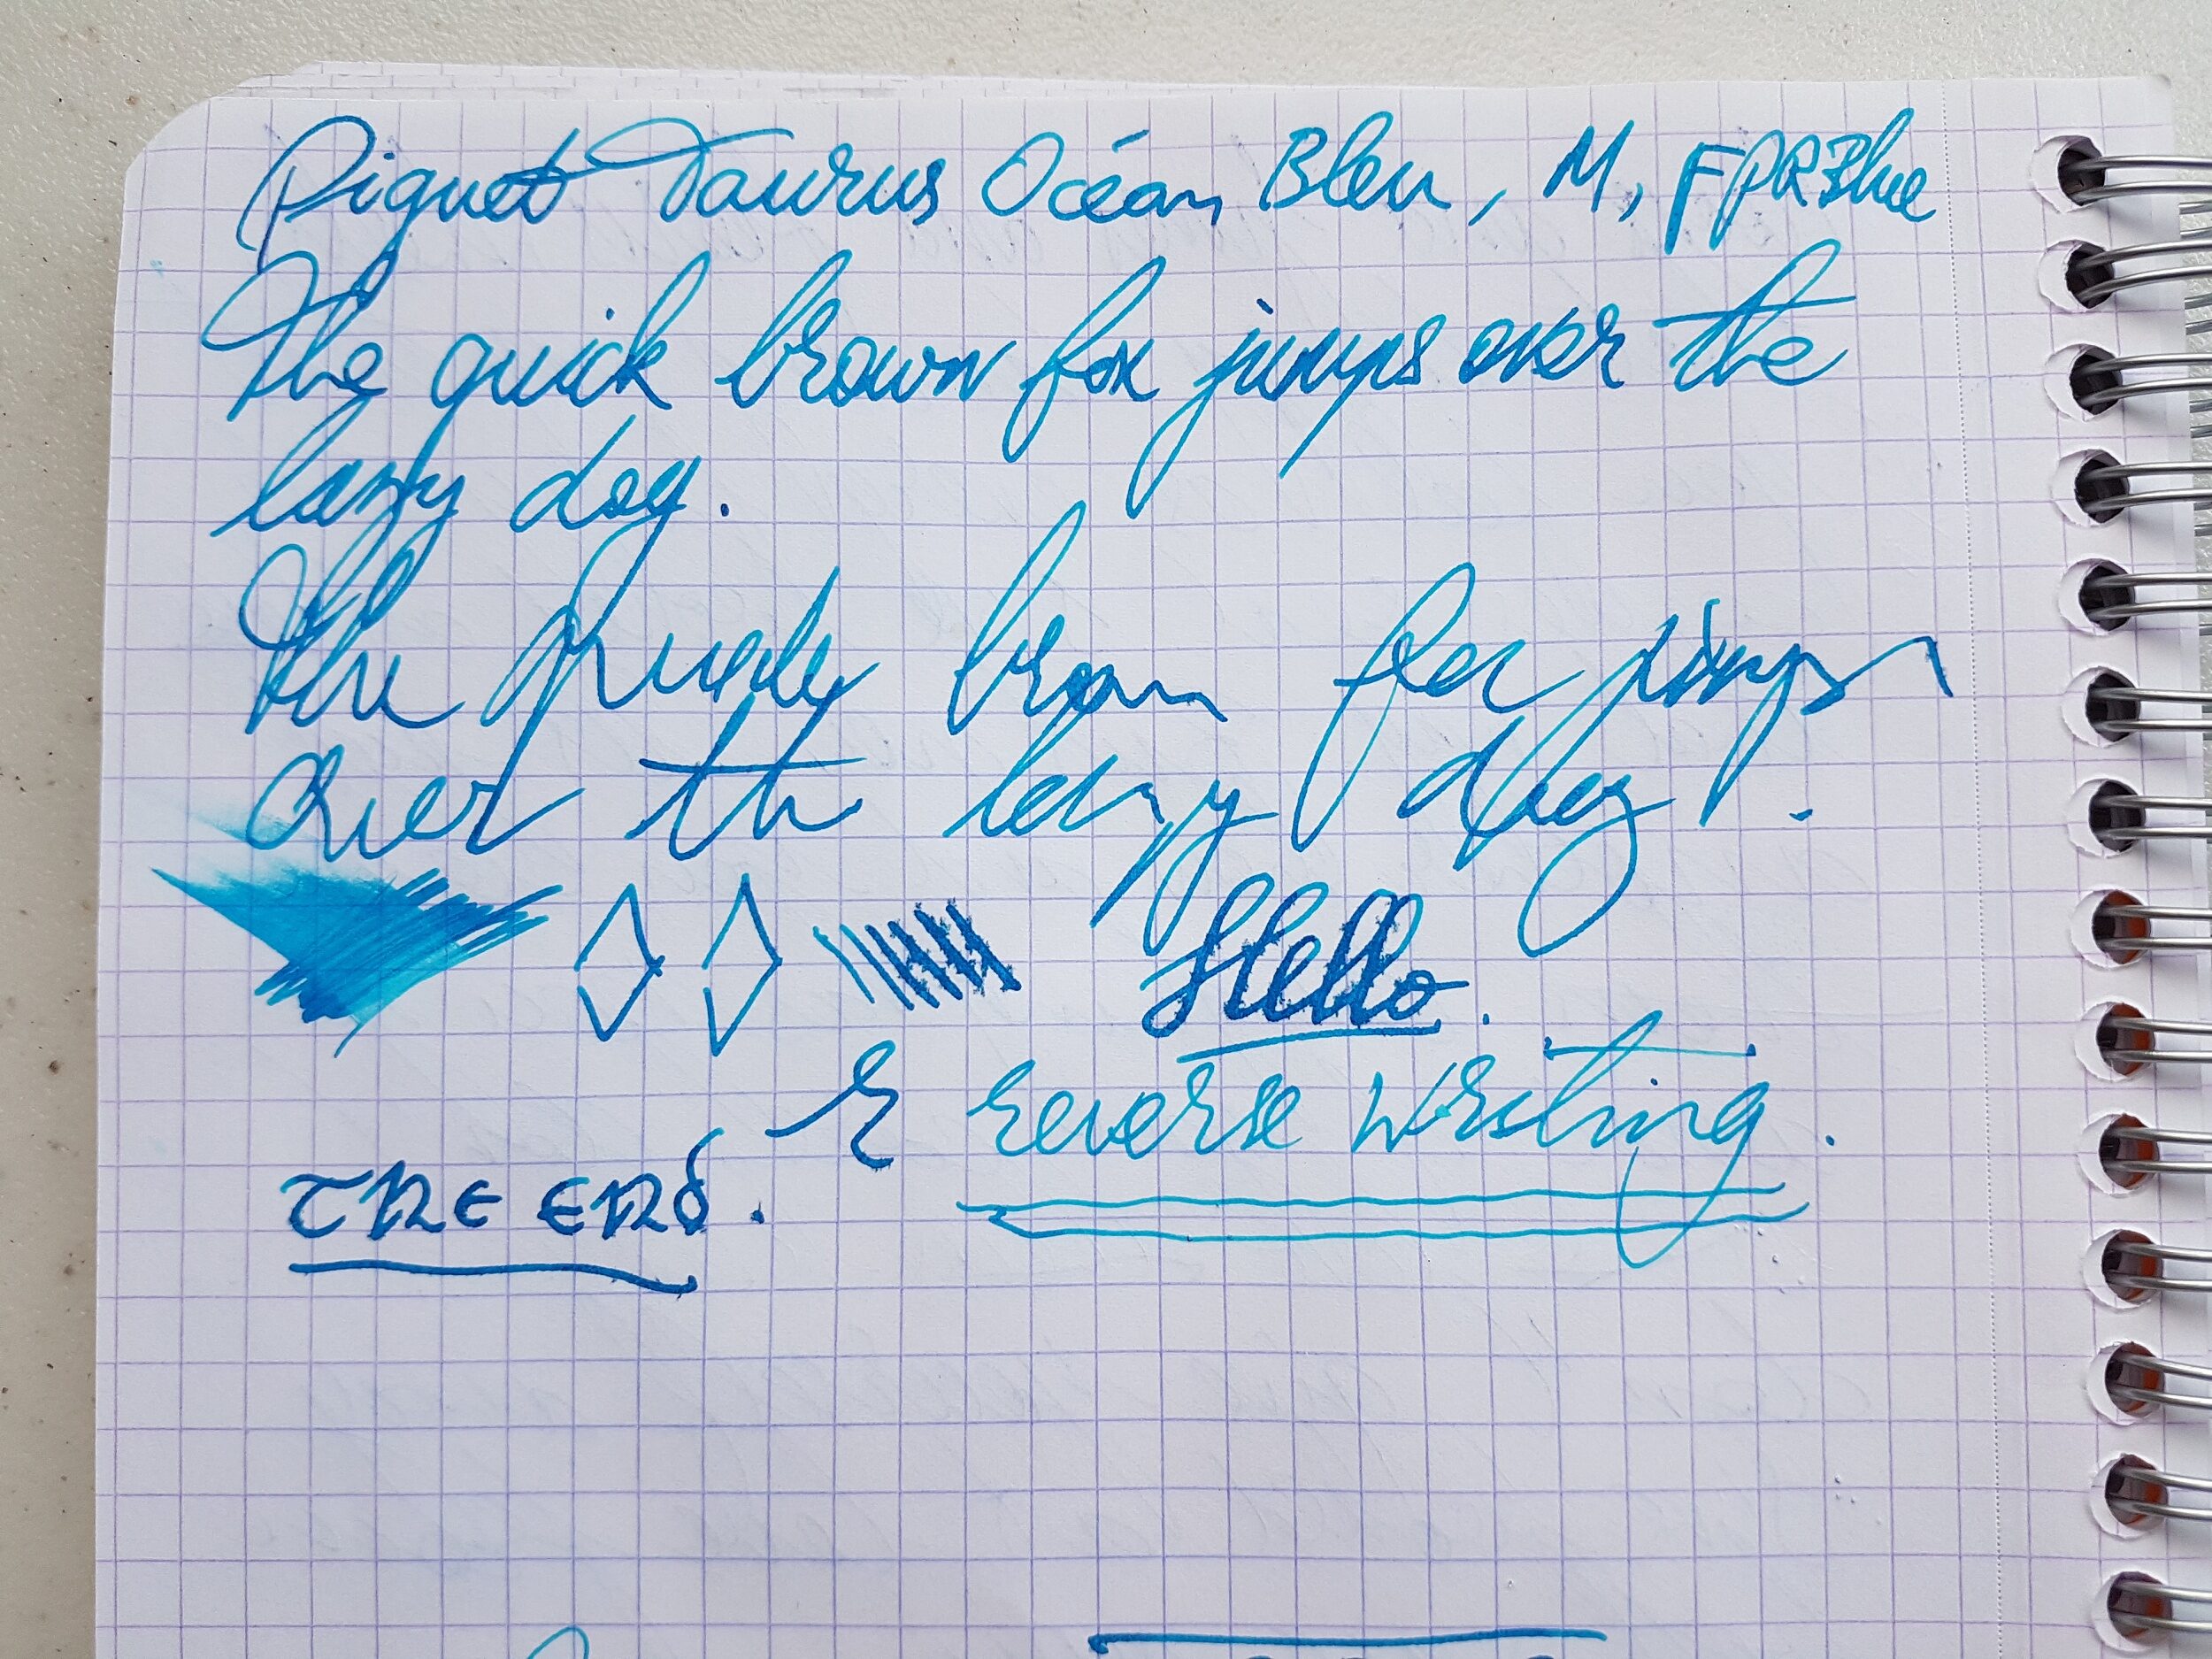 Piquet Taurus Océan Bleu, M, FPR Blue
The quick brown fox jumps over the
lazy dog.
The quick brown fox jumps
over the lazy dog.
Hello.
& reverse writing.
THE END.